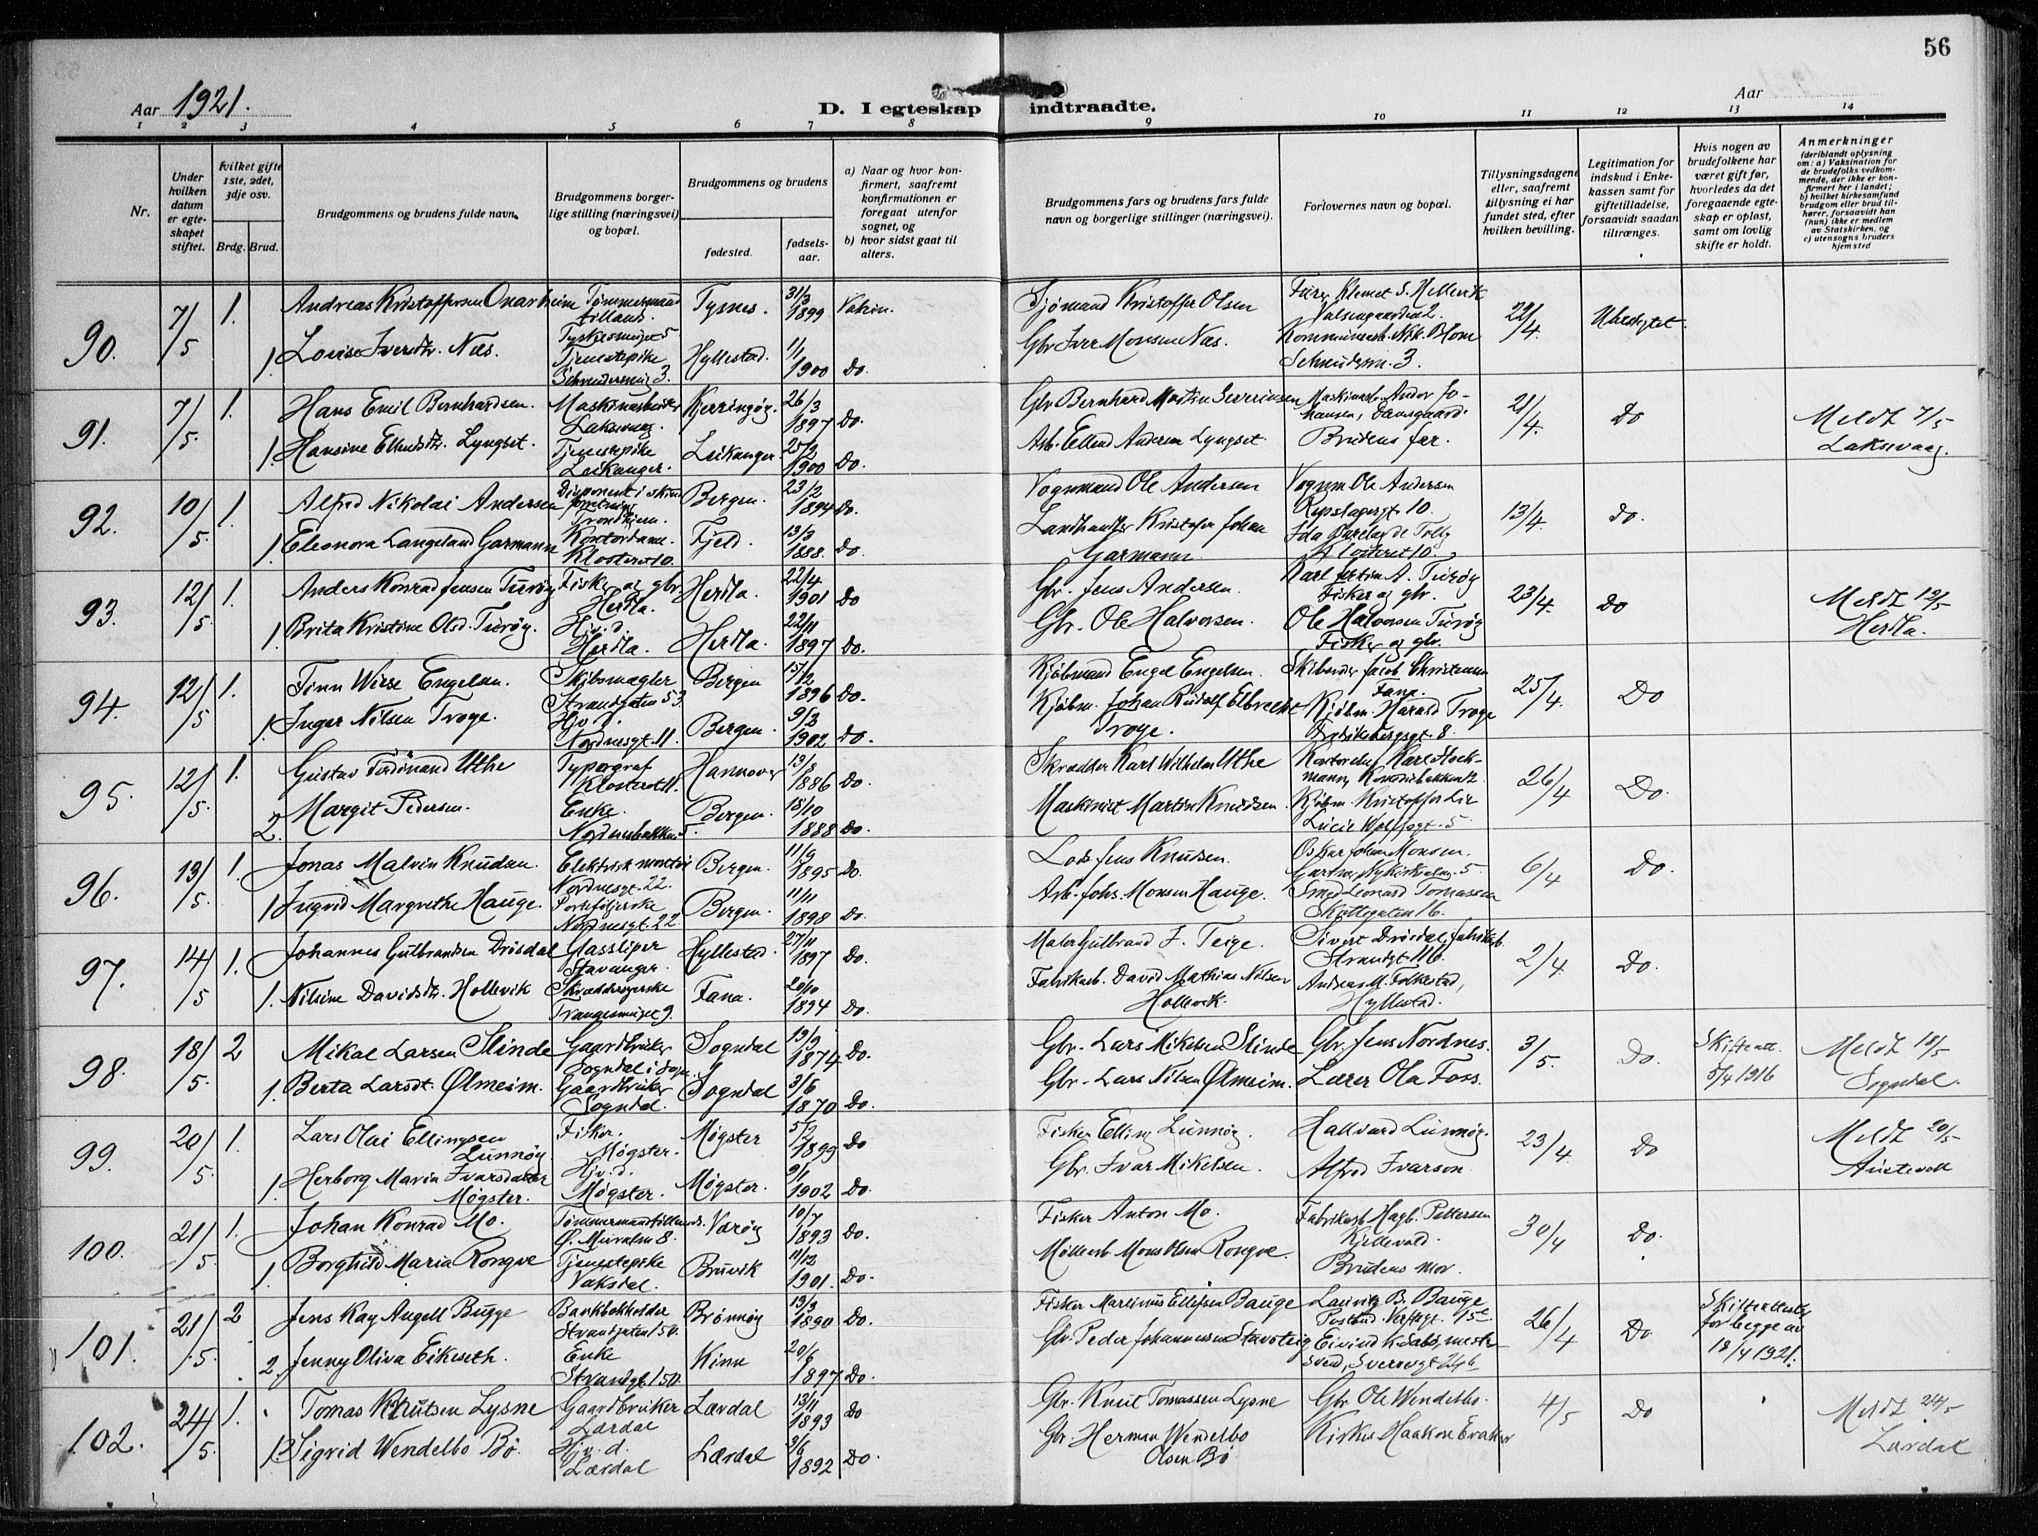 56
Aar 1921.
D. I egteskap indtraadte.
Aar
1 2 3 4 5 6 7 8 9 10 11 12 13 14
Nr.
Under hvilken datum er egteskapet stiftet.
Hvilket gifte 1ste, 2det, 3dje osv.
Brdg. Brud.
Brudgommens og brudens fulde navn.
Brudgommens borgerlige stilling (næringsvei) og bopæl.
Brudgommens og brudens
fødested.
fødselsaar.
a) Naar og hvor konfirmert, saafremt konfirmationen er foregaat utenfor sognet, og
b) hvor sidst gaat til alters.
Brudgommens fars og brudens fars fulde navn og borgerlige stillinger (næringsvei).
Forlovernes navn og bopæl.
Tillysningsdagene eller, saafremt tillysning ei har fundet sted, efter hvilken bevilling.
Legitimation for indskud i Enkekassen samt for giftetilladelse, forsaavidt saadan tiltrænges.
Hvis nogen av brudefolkene har været gift før, hvorledes da det foregaaende egteskap er opløst, samt om lovlig skifte er holdt.
Anmerkninger
(deriblandt oplysning om: a) Vaksination for de brudefolks vedkommende, der ikke er konfirmert her i landet; b) hvilket kirkesamfund brudgom eller brud tilhører, forsaavidt han (hun) ikke er medlem av Statskirken, og c) utensogns bruders hjemsted
90. 7/5 1. Andreas Kristoffersen Onarheim Tømmermand Tysnes. 31/3 1899 Sjømand Kristoffer Olsen Klemet S. Hellevik 22/4 Ubeskyttet.
1 Louise Iversdtr. Næs. Tjenestepike Hyllestad. 1/1 1900 Do. Gbr Iver Monsen Næs. Nik. Blom 3.
91. 7/5. 1. Hans Emil Bernhardsen. Maskinarbeider Laksevaag Kjerringøy. 26/3 1897 Do. Gbr Bernhard Martin Severinsen Johansen, Damsgaard. 21/4. Do Meldt 7/5 Laksevaag.
1. Hansine Ellendsdtr. Lyngset. Tjenestepike Leikanger. Leikanger. 1900 Do. Arb. Ellend Andersen Lyngset. Brudens far.
92. 10/5. 1. Alfred Nikolai Andersen Disponent i Trondhjem. Bergen. 23/2 1894 Do. Vognmand Ole Andersen Vognm Ole Andersen Repslagergt 10. 13/4. Do.
1. Eleonora Langeland Garmann Kontordame. Klosteret 10. Fjeld. 13/3 1888. Do. Landhandler Kristofer Johan Garmann Klosteret 10.
93. 12/5. 1. Anders Konrad Jensen Turøy Fisker og gbr. Herdla. Herdla. 22/4 1901 Do Gbr. Jens Andersen. Turøy Fisker og gbr. 23/4. Do Meldt 12/5 Herdla.
1. Brita Kristine Olsd. Turøy. Hj. d. Herdla. Herdla. 22/11 1897 Do. Gbr. Ole Halvorsen. Ole Halvorsen Turøy Fisker og gbr.
94. 12/5 1. Finn Wiese Engelsen. Skibsmægler Strandgaten 53 Bergen 1896 Do. Kjøbmand Engel Engelsen. Jacob Christensen Fana. 25/4. Do
1. Inger Nilsen Troye. Hj. d. Nordnesgt. 11 Bergen. 9/3 1902 Do. Kjøbm. Johan Rudolf Elbrecht Troye. Kjøbm. Harald Troye 8.
95. 12/5. 1. Gustav Ferdinand Uthe Typograf Klosteret 11. Hannover 1886 Do. Skrædder Karl Wilhelm Uthe 26/4 Do.
2. Margit Pedersen. Enke. Nordnesbakken 5. Bergen. 15/10 1888 Do. Maskinist Martin Knudsen Kjøbm. Kristoffer Lie Lucie Wolffsgt. 5
96. 13/5. 1. Jonas Malvin Knudsen. Elektrisk montør Nordnesgt. 22. Bergen. 11/9 1895 Do. Lods Jens Knudsen. Oskar Johan Monsen. 6/4 Do.
1 Ingrid Margrethe Hauge. Nordnesgt. 22 Bergen. 11/11 1898 Do. Arb. Johs. Monsen Hauge. Smed Leonard Tomassen 16.
97. 14/5 1. Johannes Gulbrandsen Drösdal Glassliper Stavanger. Hyllestad. 27/11 1897 Do. Maler Gulbrand J. Teige. Sivert Drösdal, fabrikarb. Strandgt. 116. 2/4 Do.
1. Nilsine Davidsdtr. Hollevik Fana. 20/10 1894 Do. Fabrikarb. David Mathias Nilsen Hollevik. Andreas M. Folkestad, Hyllestad.
98. 18/5. 2 Mikal Larsen Slinde Gaardbruker Sogndal i Sogn. Sogndal 1874 Do. Gbr. Lars Mikelsen Slinde Gbr. Jens Nordnes. 3/5 Do. Skifteatt. 5/4 1916 Meldt 18/5 Sogndal.
1. Berta Larsdt. Ølmeim. Gaardbruker Sogndal. Sogndal 3/6 1870 Do. Gbr. Lars Nilsen Ølmeim. Lærer Ola Foss.
99. 20/5. 1. Lars Olai Ellingsen Lunnøy. Fisker. Møgster. Møgster 5/2 1899 Do Fisker Elling Lunnøy. Hallvard Lunnøy. 23/4. Do Meldt 20/5 Austevoll
1. Herborg Marin Ivarsdatter Møgster. Hj. d. Møgster. Møgster. 9/1 1902 Do. Gbr. Ivar Mikelsen. Alfred Ivarson.
100. 21/5. 1. Johan Konrad Mo. Tømmermand Værøy 10/7 1893 Do. Fisker Anton Mo. Fabrikarb Hagb. Pettersen 30/4 Do.
1. Borghild Maria Rongve Tjenestepike Vaksdal. Bruvik 11/12 1901. Do. Møllearb Mons Olsen Rongve. Brudens mor.
101. 21/5. 2 Jens Kay Angell Bugge Bankbokholder Strandgaten 150. Brønnøy 13/3 1890 Do. Fisker Martinus Ellefsen Bauge Lauritz B. Bauge 26/4 Do Skifteattest for begge av 18/4 1921.
2. Jenny Oliva Eikeseth. Enke Strandgt. 150. Kinn 20/6 1897 Do. Gbr. Peder Johannessen Eivind
102. 24/5. 1. Tomas Knutsen Lysne Gaardbruker Lærdal Lærdal 13/11 1893 Do Gbr. Knut Tomassen Lysne Gbr Ole Wendelbo. 4/5 Do Meldt 24/5 Lærdal
1. Sigrid Wendelbo Bø. Hj. d. Lærdal Lærdal 3/6 1892 Do. Gbr. Herman Wendelbo Olsen Bø Haakon